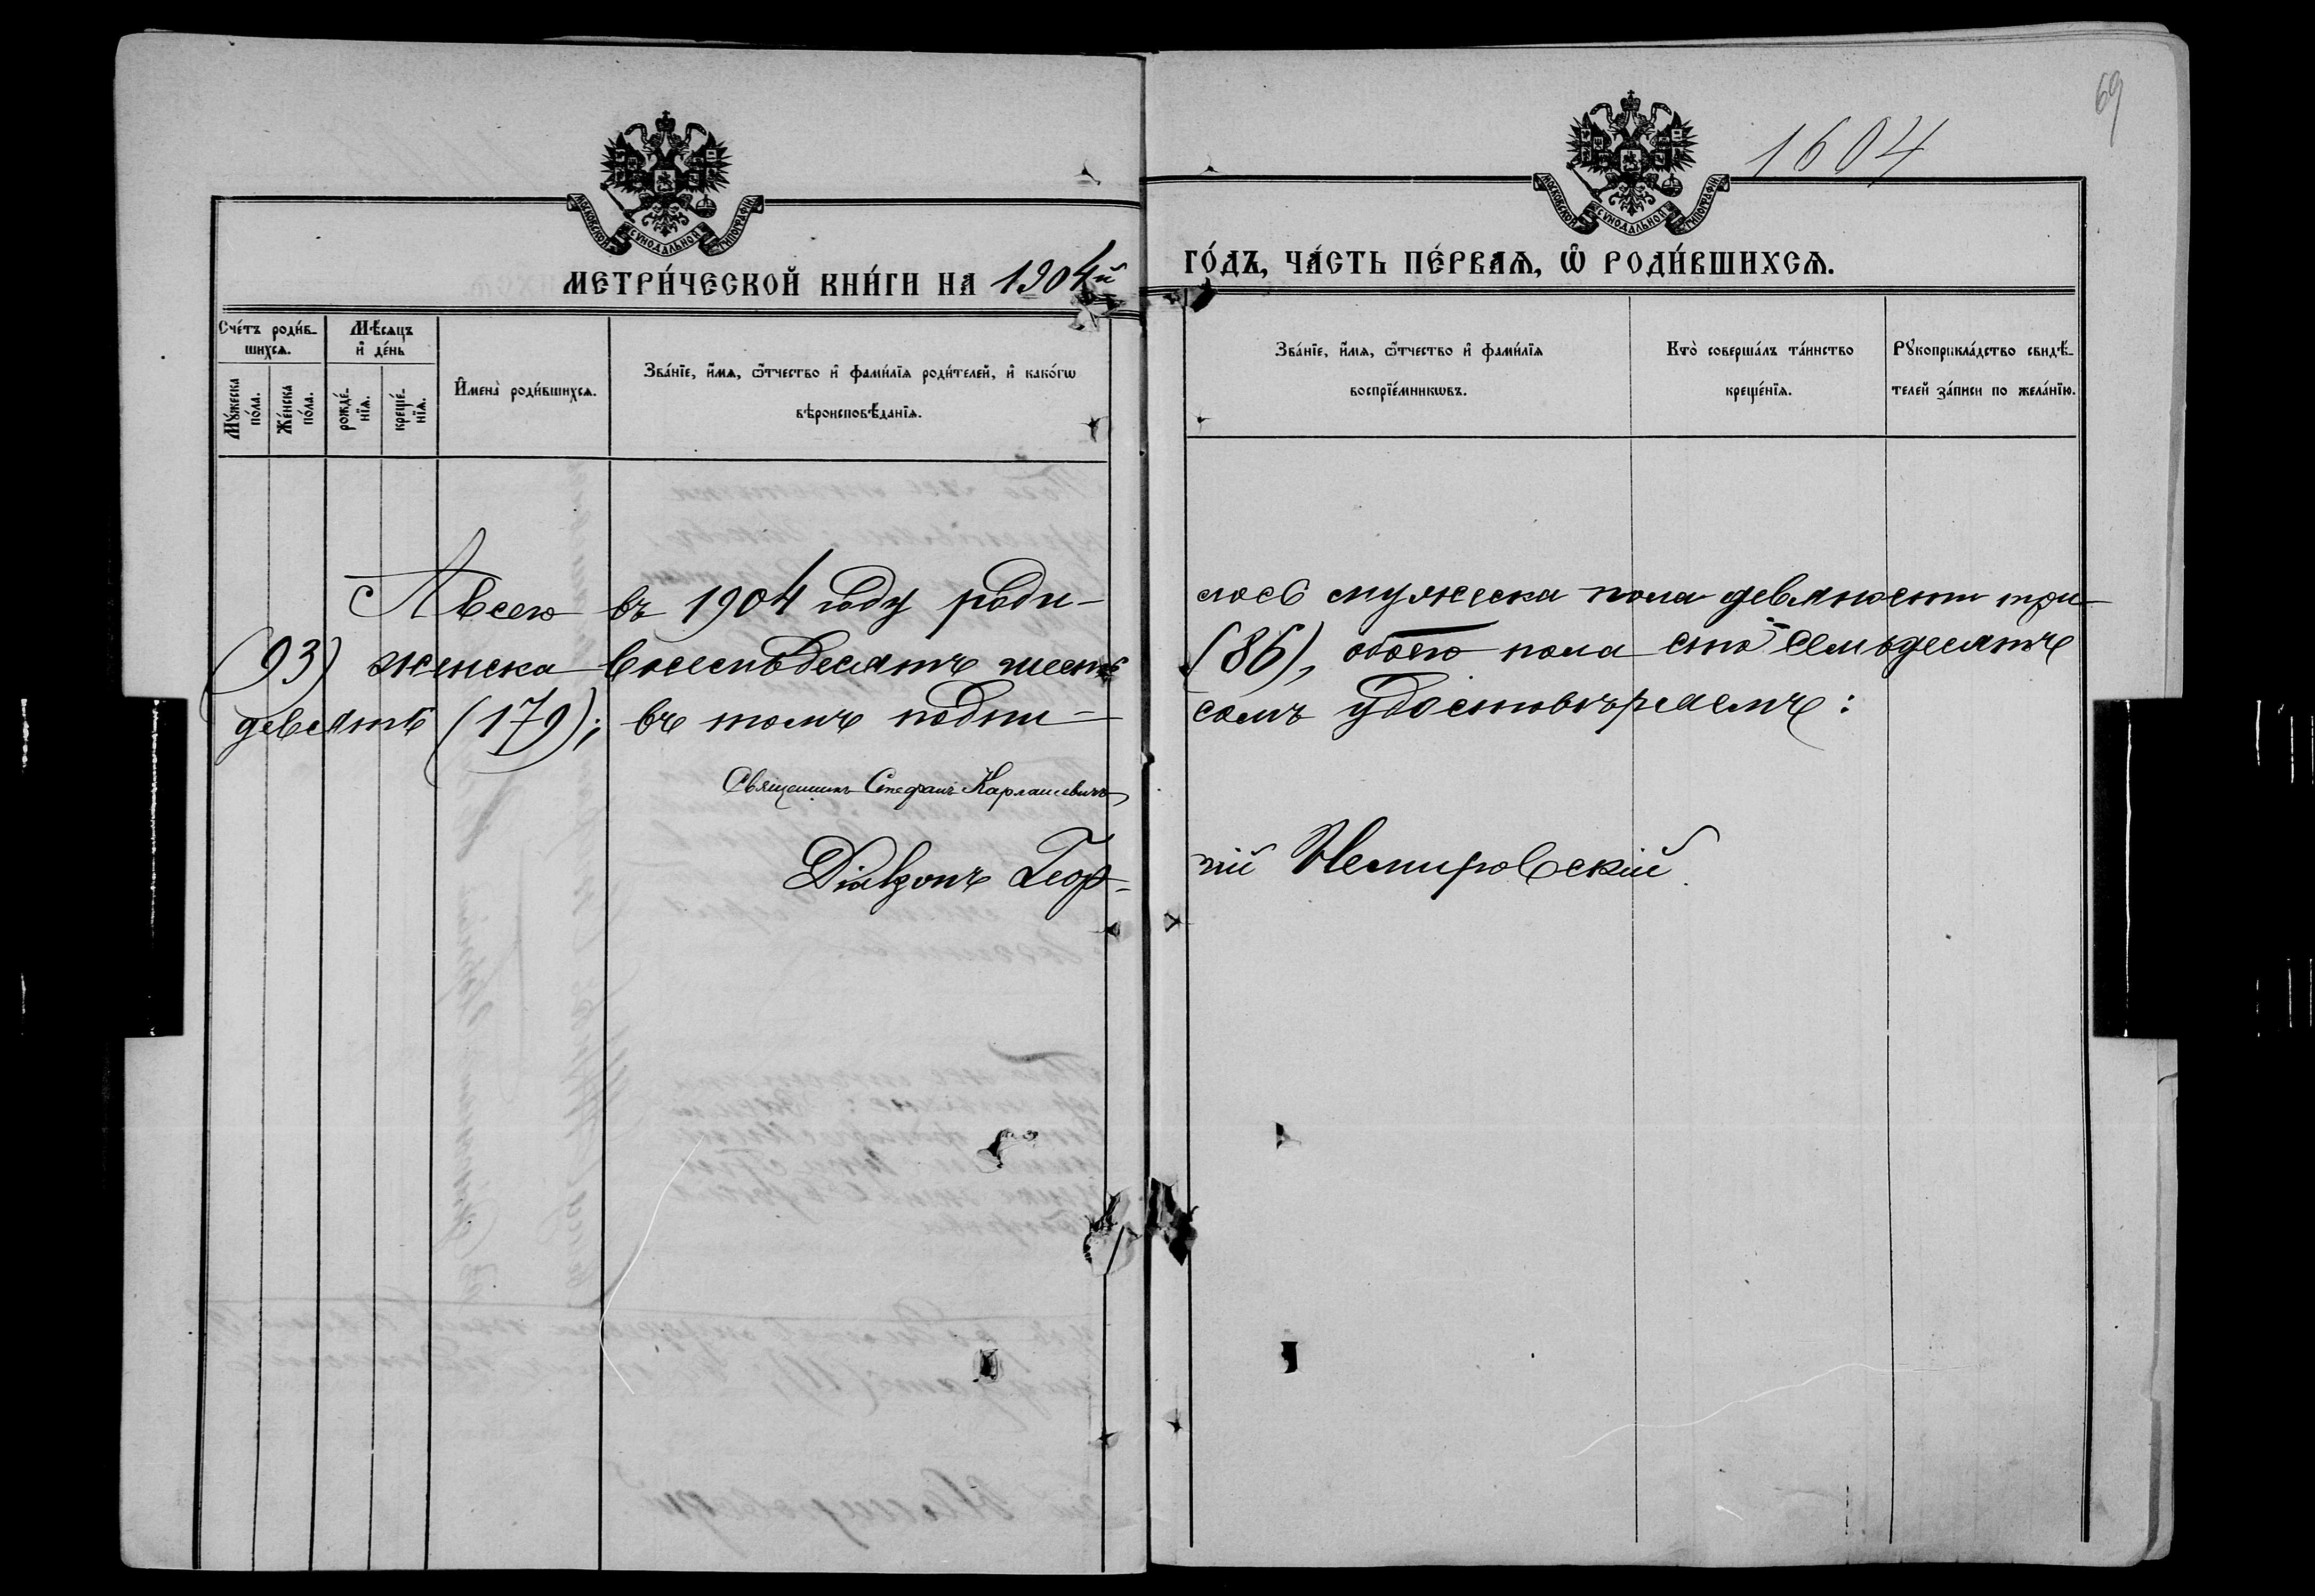 69
1604
МОСКОВСКОЙ СѴНОДАЛЬНОЙ ТИПОГРАФІИ
МОСКОВСКОЙ СѴНОДАЛЬНОЙ ТИПОГРАФІИ
МЕТРИ́ЧЕСКОЙ КНИ́ГИ НА 1904й
ГО́ДЪ, ЧА́СТЬ ПЕ́РВАѦ, Ѡ҆ РОДИ́ВШИХСѦ.
Сче́тъ роди́в-
шихсѧ.
Мѣ́сѧцъ
и҆ де́нь
Мꙋ́жеска
по́ла.
Же́нска
по́ла.
рожде́-
нїѧ.
креще́-
нїѧ.
И҆мена̀ роди́вшихсѧ.
Зва́нїе, и҆́мѧ, ѻ҆́тчество и҆ фами́лїѧ роди́телей, и҆ како́гѡ
вѣроисповѣ́данїѧ.
Зва́нїе, и҆́мѧ, ѻ҆́тчество и҆ фами́лїѧ
воспрїе́мникѡвъ.
Кто̀ соверша́лъ та́инство
креще́нїѧ.
Рꙋкоприкла́дство свидѣ́-
телей за́писи по жела́нїю.
А всего въ 1904 году роди-
лось мужеска пола девяносто три
(93) женска восемьдесятъ шесть
(86), обоего пола сто семьдесятъ
девять (179); въ томъ подпи-
сомъ удостовѣряемъ:
Священникъ Стефанъ Карлашевичъ
Діаконъ Геор-
гій Немировскій.